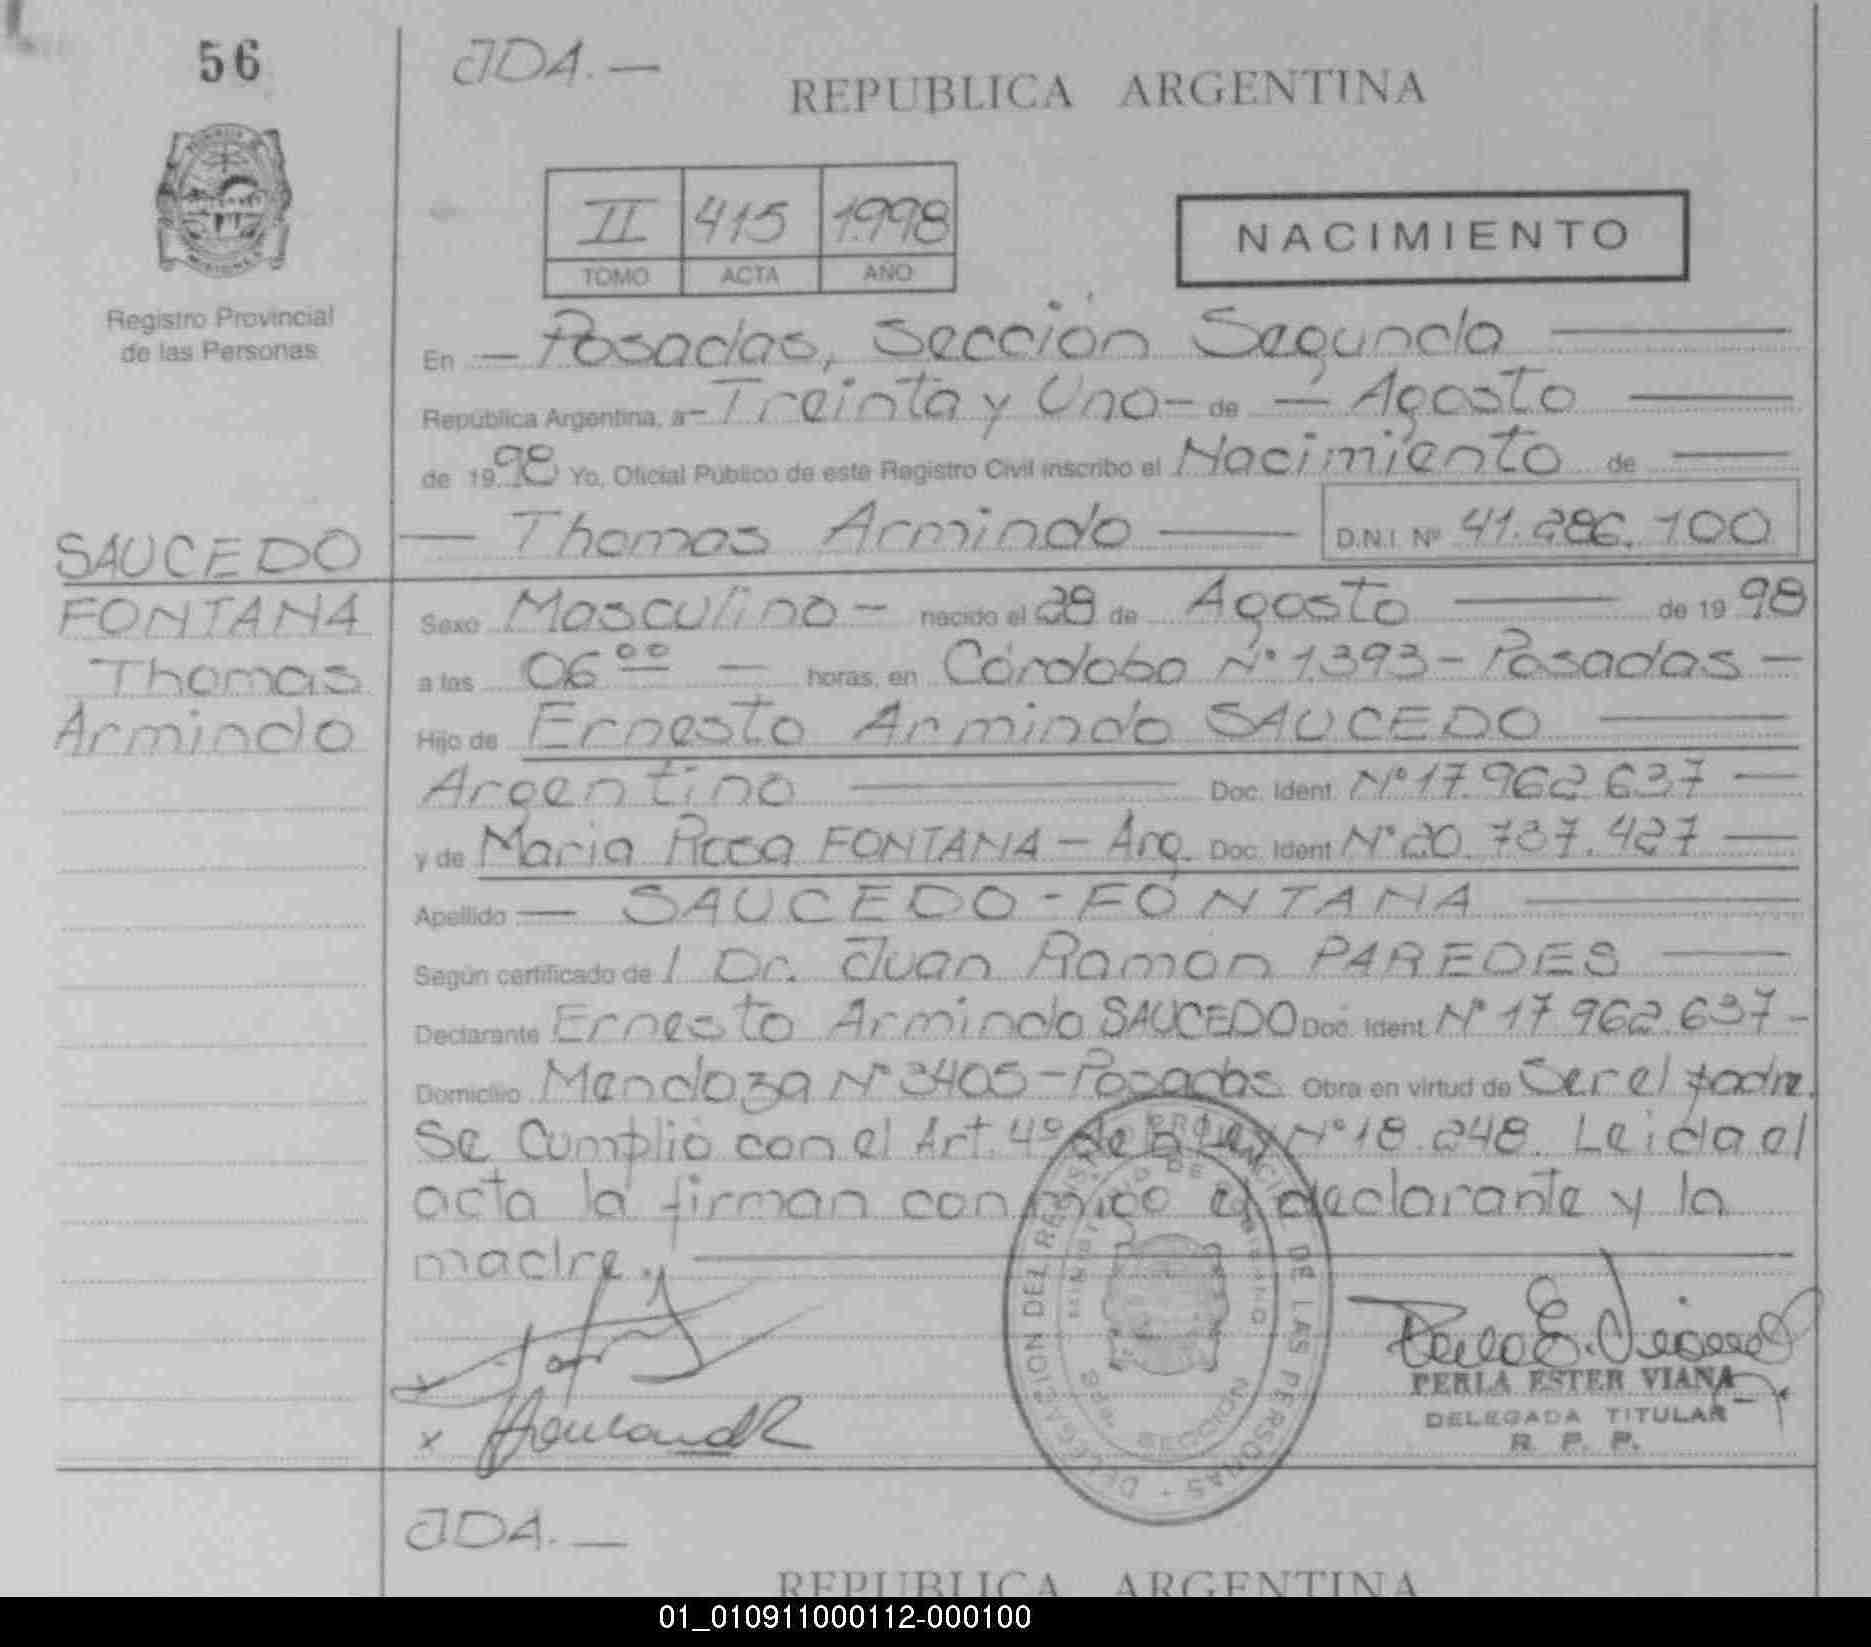 56
JDA.—
REPUBLICA ARGENTINA
II 415 1.998
TOMO ACTA AÑO
NACIMIENTO
Registro Provincial
de las Personas
En — Posadas, Sección Segunda —
República Argentina, a – Treinta y Uno – de — Agosto —
de 19 98 Yo, Oficial Público de este Registro Civil inscribo el Nacimiento de —
— Thomas Armindo — D.N.I. Nº 41.286.100
SAUCEDO
FONTANA
Thomas
Armindo
Sexo Masculino – nacido el 28 de Agosto — de 19 98
a las 06 ºº — horas, en Córdoba Nº 1.393 – Posadas –
Hijo de Ernesto Armindo SAUCEDO —
Argentino — Doc. Ident. Nº 17.962.637 —
y de Maria Rosa FONTANA – Arg. Doc. Ident Nº 20.737.427 —
Apellido — SAUCEDO - FONTANA —
Según certificado de / Dr. Juan Ramon PAREDES —
Declarante Ernesto Armindo SAUCEDO Doc. Ident. Nº 17.962.637 –
Domicilio Mendoza Nº 3405 – Posadas Obra en virtud de Ser el padre.
Se Cumplió con el Art. 4º de la Ley Nº 18.248. Leida el
acta la firman conmigo el declarante y la
madre. —
DELEGACION DEL REGISTRO PROVINCIAL DE LAS PERSONAS
x
x
PERLA ESTER VIANA
DELEGADA TITULAR
R. P. P.
JDA.—
REPUBLICA ARGENTINA
01_010911000112-000100